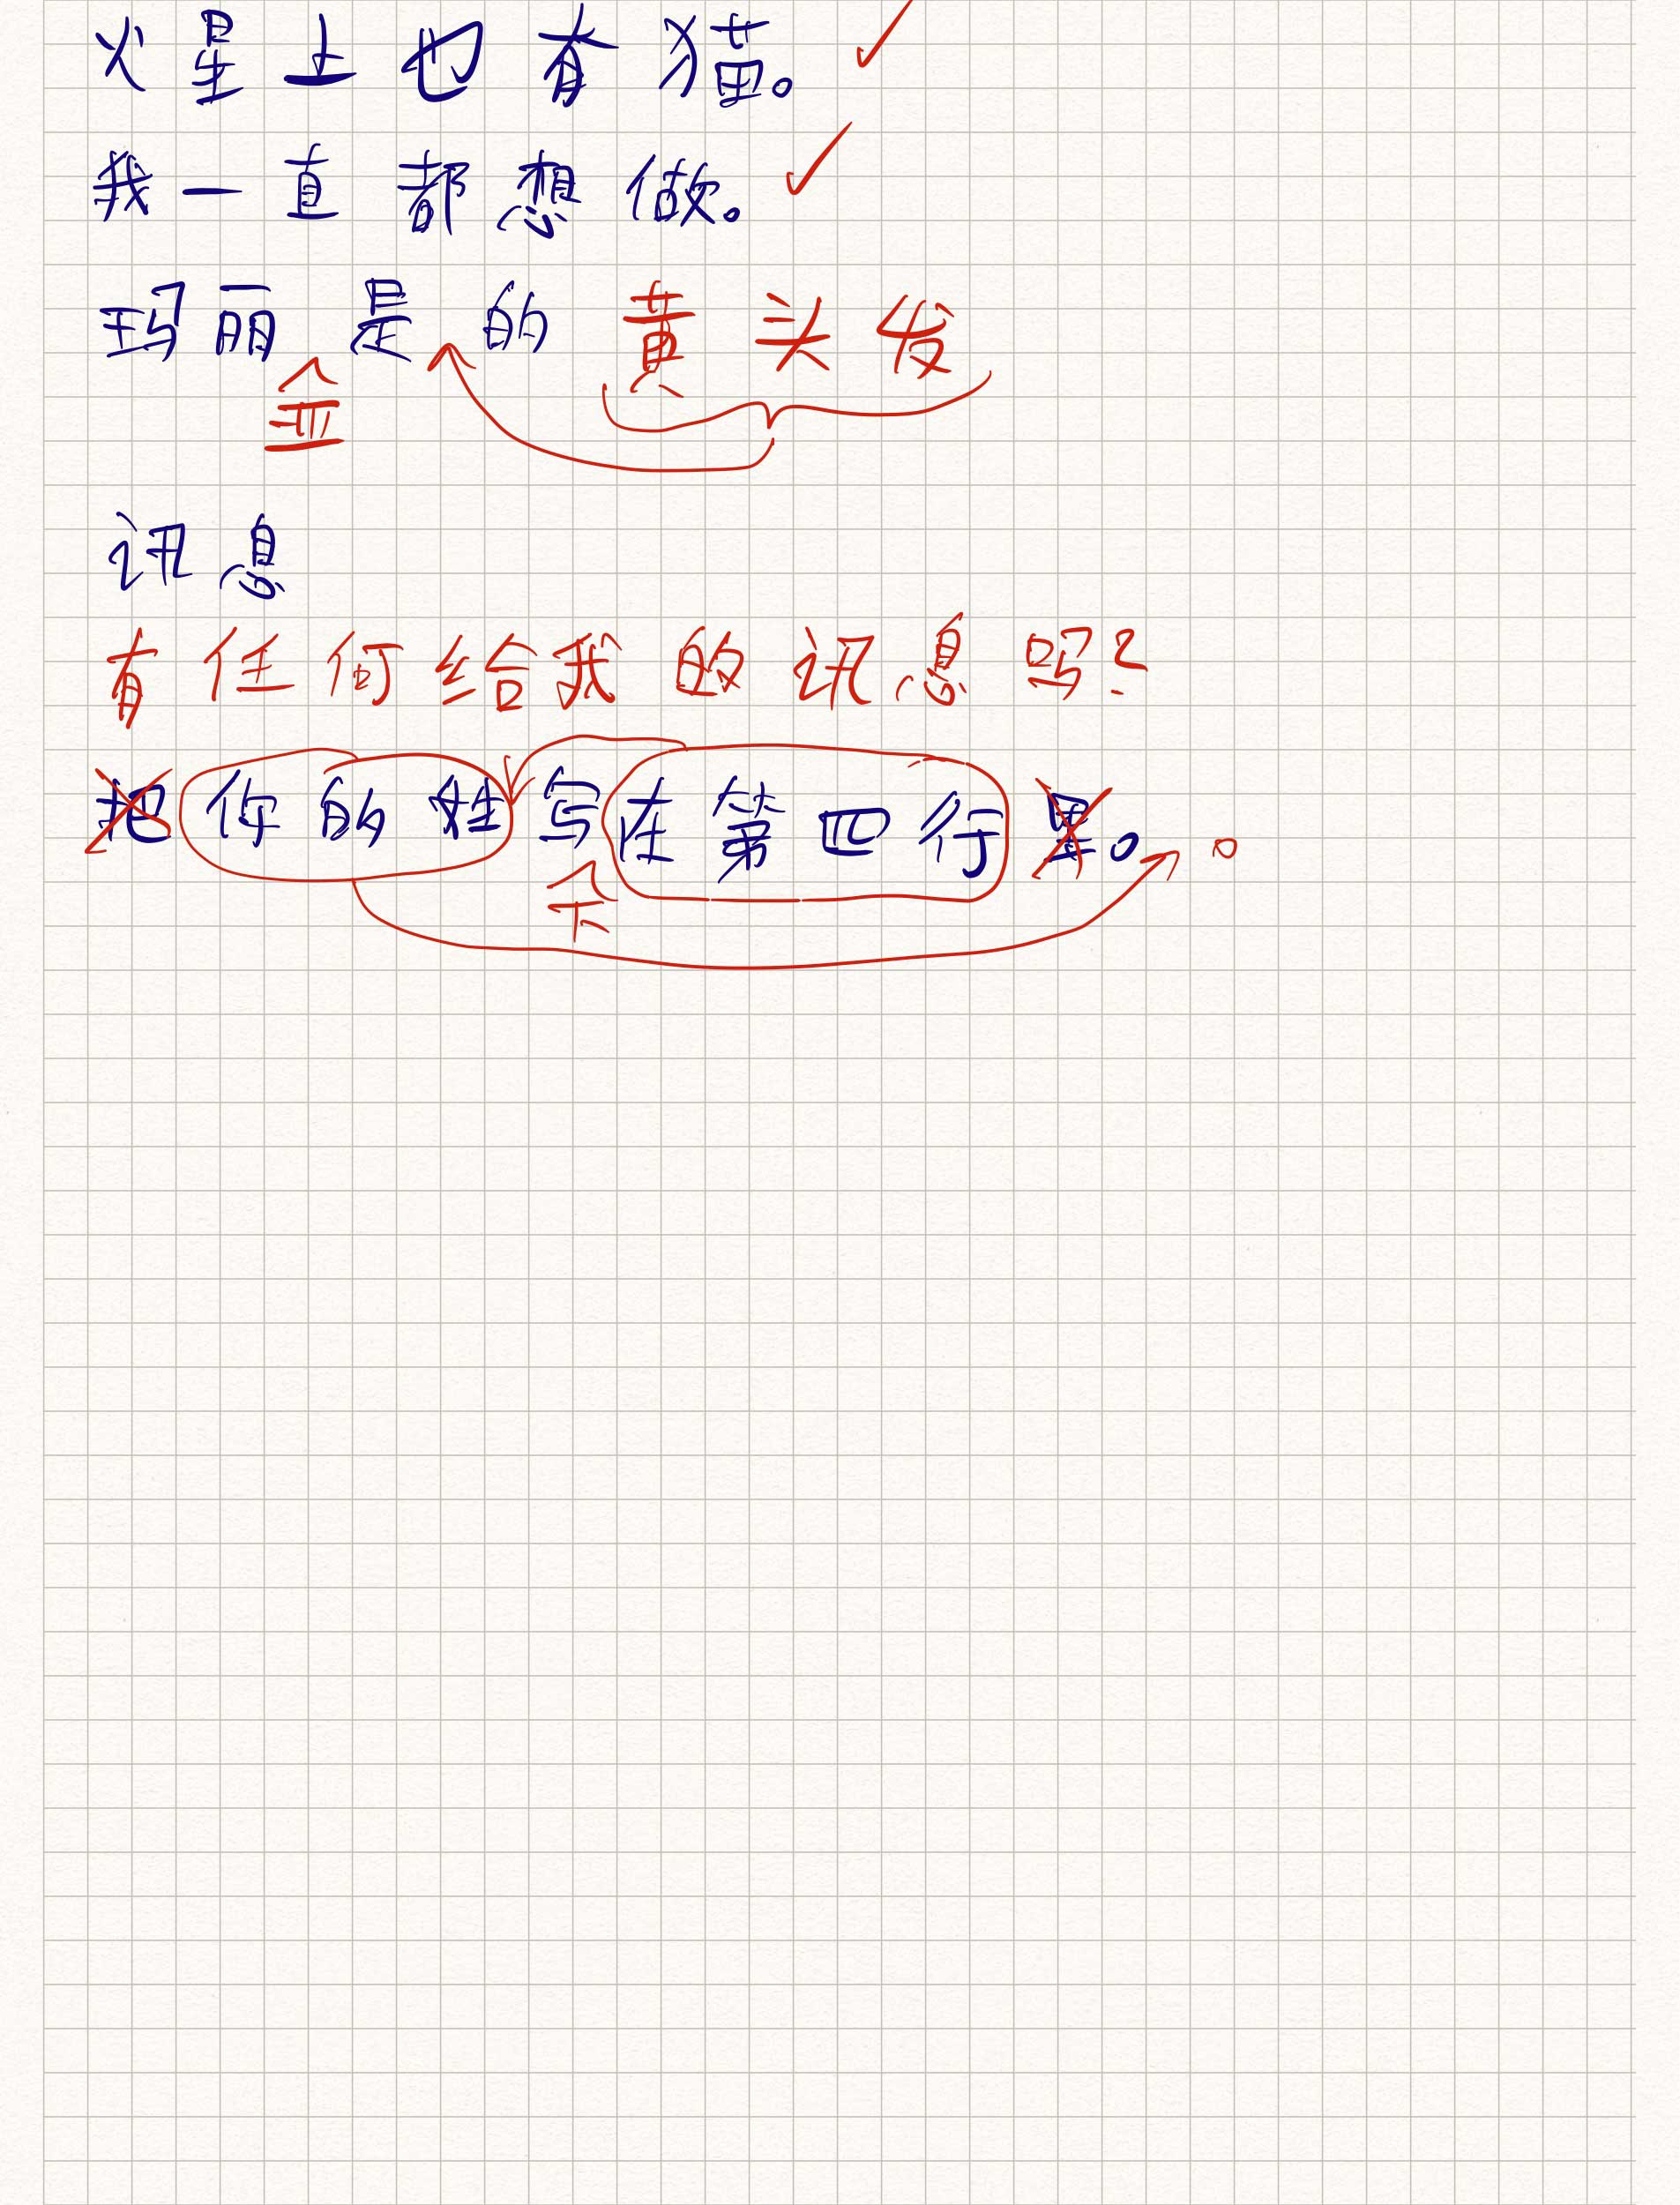 火星上也有猫。
我一直都想做。
玛丽是的黄头发
金
讯息
有任何给我的讯息吗?
把你的姓写在第四行里。。
下